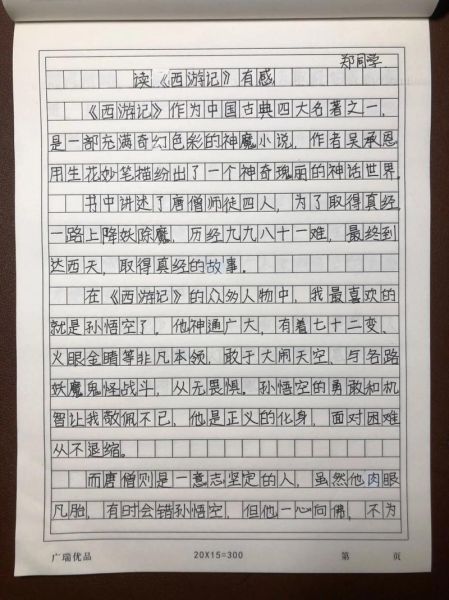 郑同学
读《西游记》有感
《西游记》作为中国古典四大名著之一，
是一部充满奇幻色彩的神魔小说，作者吴承恩
用生花妙笔描纷出了一个神奇瑰丽的神话世界。
书中讲述了唐僧师徒四人，为了取得真经，
一路上降妖除魔，历经九九八十一难，最终到
达西天，取得真经的故事。
在《西游记》的众多人物中，我最喜欢的
就是孙悟空了。他神通广大，有着七十二变、
火眼金睛等非凡本领，敢于大闹天空、与各路
妖魔鬼怪战斗，从无畏惧。孙悟空的勇敢和机
智让我敬佩不已，他是正义的化身，面对困难
从不退缩。
而唐僧则是一意志坚定的人，虽然他肉眼
凡胎，有时会错孙悟空，但他一心向佛，不为
广瑞优品 20X15=300 第 页